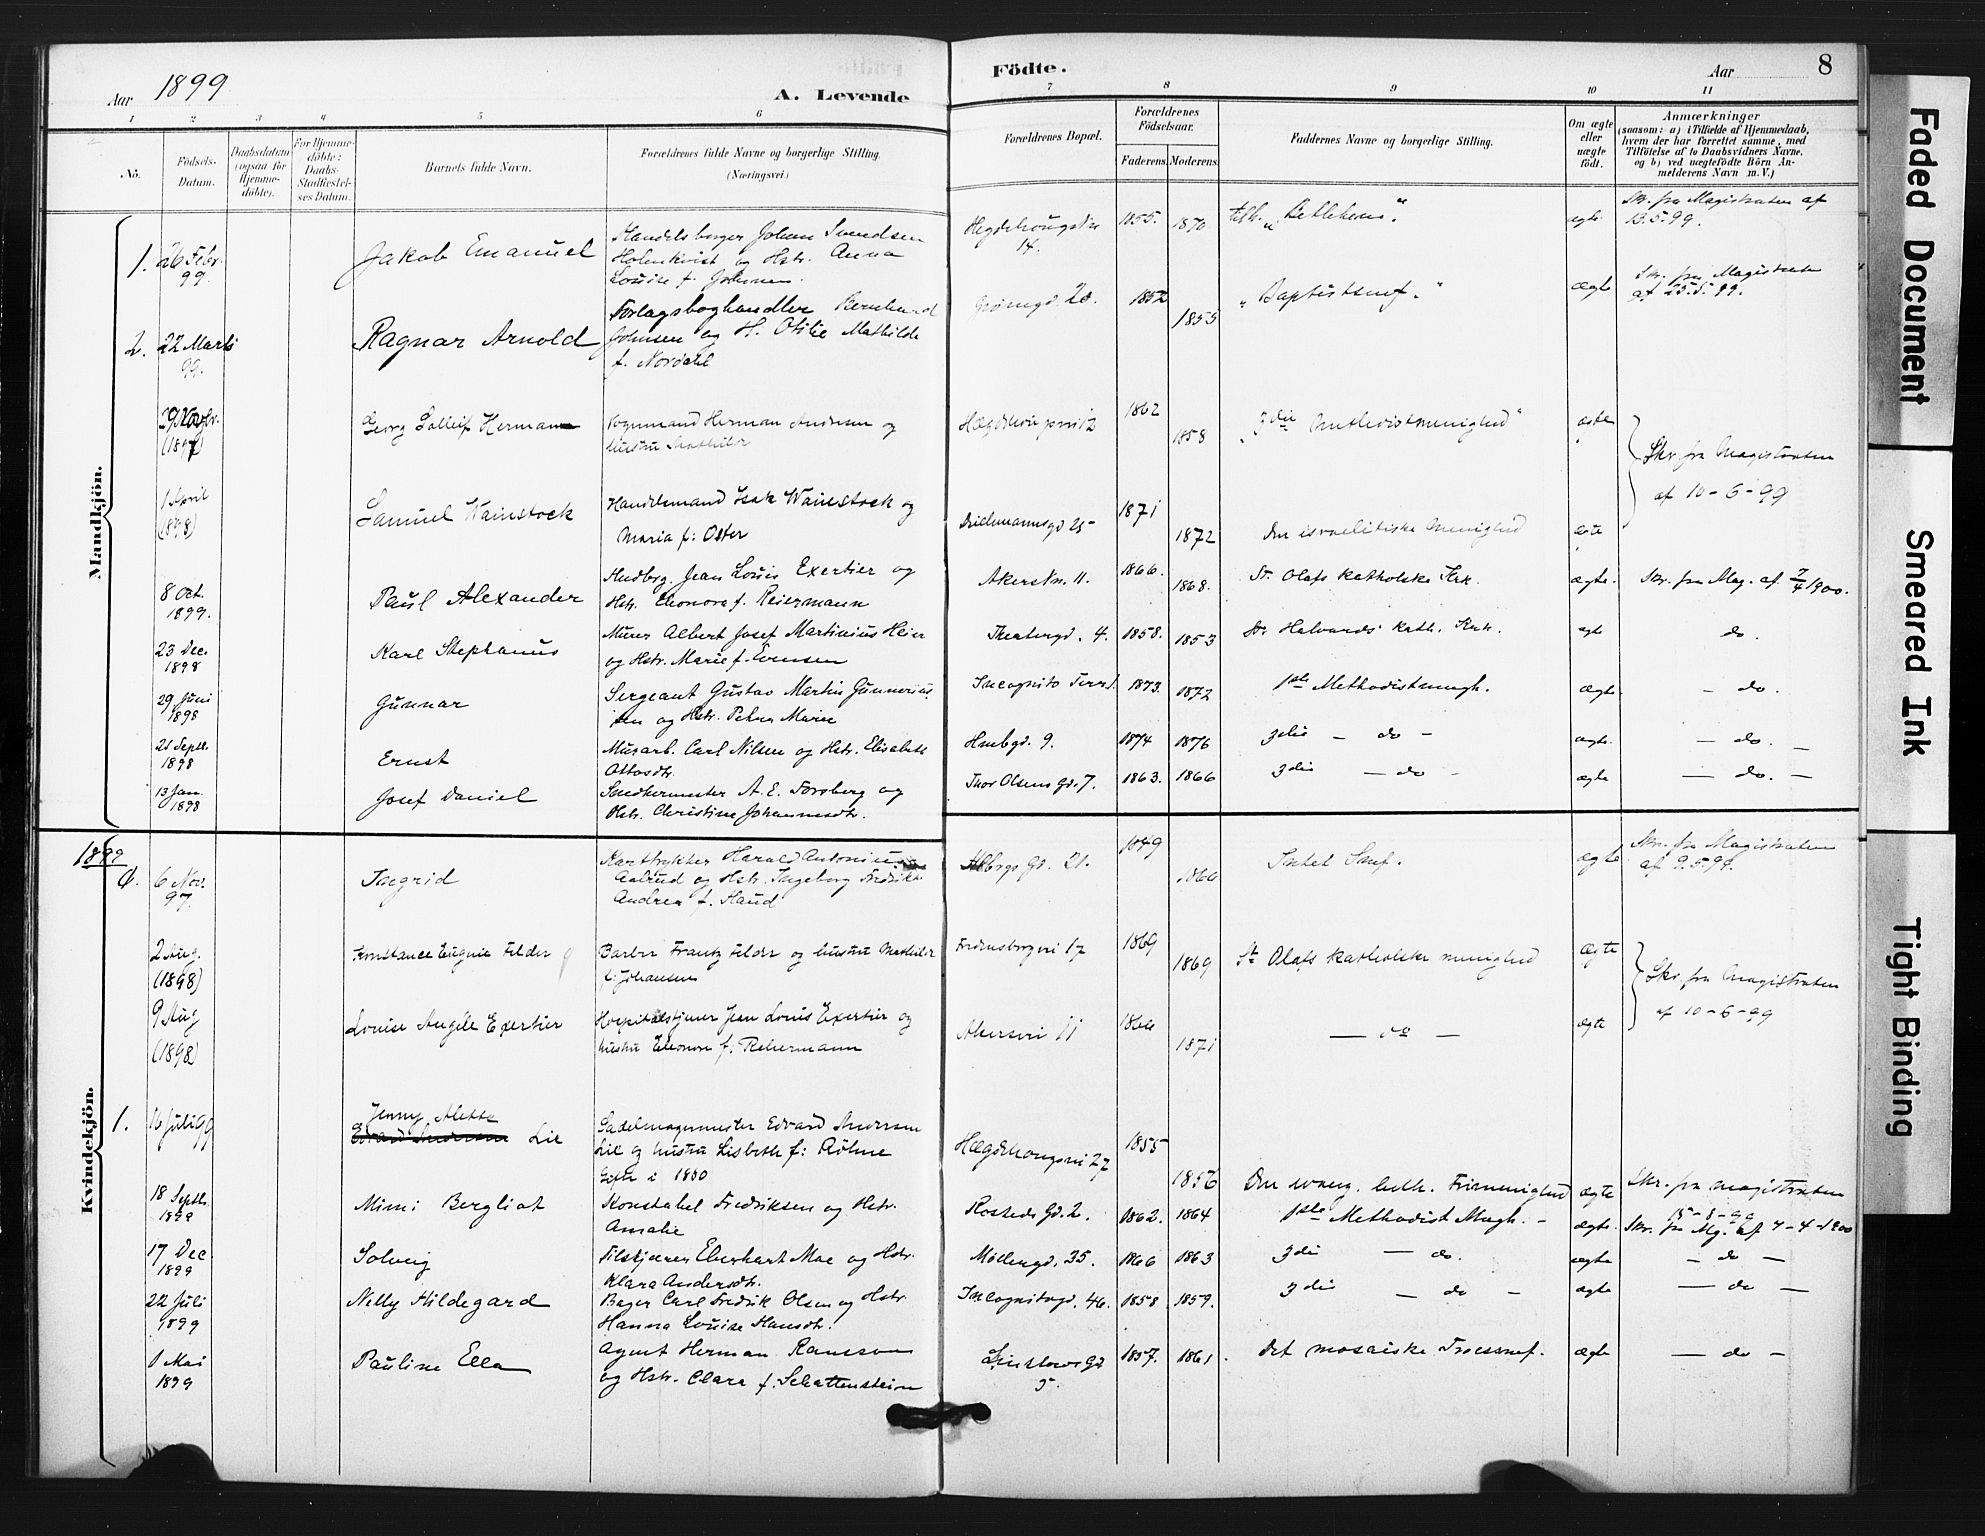 Aar 1899
A. Levende
Födte.
Aar 8
1 2 3 4 5 6 7 8 9 10 11
No.
Födsels-
Datum.
Daabsdatum
(ogsaa for
Hjemme-
döbte).
For Hjemme-
döbte:
Daabs-
Stadfæstel-
ses Datum.
Barnets fulde Navn.
Forældrenes fulde Navne og borgerlige Stilling.
(Næringsvei.)
Forældrenes Bopæl.
Forældrenes
Födselsaar.
Faderens. Moderens.
Faddernes Navne og borgerlige Stilling.
Om ægte
eller
uægte
födt.
Anmærkninger
(saasom: a) i Tilfælde af Hjemmedaab,
hvem der har forrettet samme, med
Tilföielse af to Daabsvidners Navne,
og b) ved uægtefödte Börn An-
melderens Navn m. V.)
Mandkjön.
1. 26 Febr. 99. Jakob Emanuel
Handelsborger Johan Svendsen
Holmkvist og Hstr. Anna
Louise f. Johnsen.
14. 1855. 1870 tilh. "Bethlehem" ægte
Skr. fra Magistraten af
13.5.99.
2. 22 Marts 99. Ragnar Arnold
Forlagsboghandler Bernhard
Johnsen og H. Otilie Mathilde
f. Nordahl
Grönngd. 20. 1852 1855 "Baptistsmf." ægte
Skr. fra Magistraten
af 25.5.99.
29 Novbr. (1897) Georg Herman
Herman Andersen og
hustru Mathilde
1862 1858 "3die Methodistmenighed" ægte
Skr. fra Magistraten
af 10-6-99
1 April (1898) Samuel Wainstock
Handelsmand Isak Wainstock og
Maria f: Oster
Deichmannsgd 25 1871 1872 Den israelitiske menighed ægte
8 Oct. 1899. Paul Alexander
Jean Louis Exertier og
Hstr. Eleonora f. Reiermann
Akersvn. 11. 1866. 1868. St. Olafs katholske Kirk. ægte. Skr. fra Mag. af 7/4 1900.
23 Dec. 1898 Karl Stephanus
Murer Albert Josef Martinius Heier
og Hstr. Marie f. Evensen
Theatergd. 4. 1858. 1853 St. Halvards kath. Kirk. ægte do.
29 Juni 1898 Gunnar
Sergeant Gustav Martin Gunnerius
sen og Hstr. Petra Marie
Incognito Terrd. 1873. 1872 1ste Methodistmngh. ægte — do.
21 Septr. 1898 Ernst
Murarb. Carl Nilsen og Hstr. Elisabeth
Ottosdtr.
9. 1874 1876 3die — do — ægte. — do. —
13 Jan. 1898 Josef Daniel
Snedkermester A. E. Forsberg og
Hstr. Christine Johannesdtr.
Thor Olsens Gd. 7. 1863. 1866 3die — do — ægte — do. —
Kvindekjön.
1899
6 Nov. 97. Ingrid
Harald Antonius
Aalrud og Hstr. Ingeborg Fredrikke
Andrea f. Haud
21. 1849 1860 Intet Smf. ægte
Skr. fra Magistraten
af 9.5.99.
2 Aug. (1898) Konstance Eugenie Felder
Barber Frantz Felder og hustru Mathilde
f. Johansen
Fredensborgvei 17 1869 1869 St Olafs katholske menighed ægte
Skr fra Magistraten
af 10-6-99
9 Aug (1898) Louise Angéle Exertier
Hospitalstjener Jean Louis Exertier og
hustru Eleonore f: Rehermann
Akersvei 11 1866 1871 — do — ægte
1. 16 Juli 99 Jenny Alette
Edvard Andersen Lie
Sadelmagermester Edvard Andersen
Lie og hustru Lisbeth f: Röhne
Gifte i 1880
Hægdehaugsvei 27 1855 1856 Den evang. luth. Frimenighed ægte
Skr. fra magistraten
15-8-99
18 Septb. 1899 Mimi Bergliot
Konstabel Fredriksen og Hstr.
Amalie
Rosteds Gd. 2. 1862. 1864 1ste Methodist Mngh. — ægte. Skr. fra Mg. af 7-4-1900
17 Dec 1899 Solveig
Filskjærer Eberhart Moe og Hstr.
Klara Andersdtr.
Möllergd. 35. 1866 1863 3die — do. ægte — do —
22 Juli 1899 Nelly Hildegard
Bager Carl Fredrik Olsen og Hstr.
Hanna Louise Hansdtr.
Incognitogd. 46. 1858 1859. 3die — do — ægte — do —
1 Mai 1899 Pauline Ella
Agent Herman Ransom
og Hstr. Clara f. Schattenstein
Linstows Gd 5. 1857. 1861. Det mosaiske Troessmf. ægte — do —
Faded Document
Smeared Ink
Tight Binding